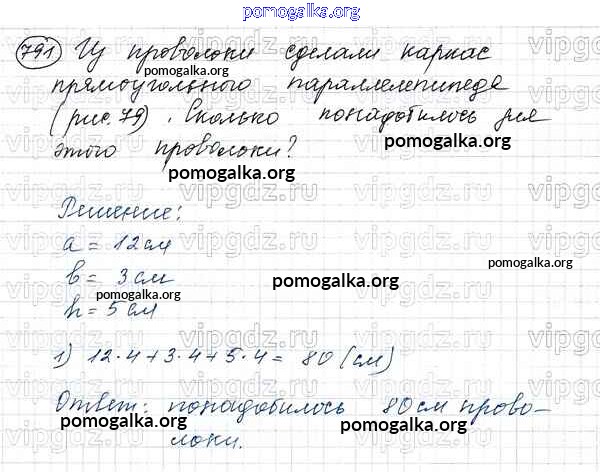 pomogalka.org
791 Из проволоки сделали каркас
прямоугольного параллелепипеда
(рис. 79). Сколько понадобилось для
этого проволоки?
Решение:
a = 12 см
b = 3 см
h = 5 см
1) 12·4+3·4+5·4= 80 (см)
Ответ: понадобилось 80 см прово-
локи.
pomogalka.org
pomogalka.org
pomogalka.org
pomogalka.org
pomogalka.org
pomogalka.org
pomogalka.org
pomogalka.org
pomogalka.org
vipgdz.ru